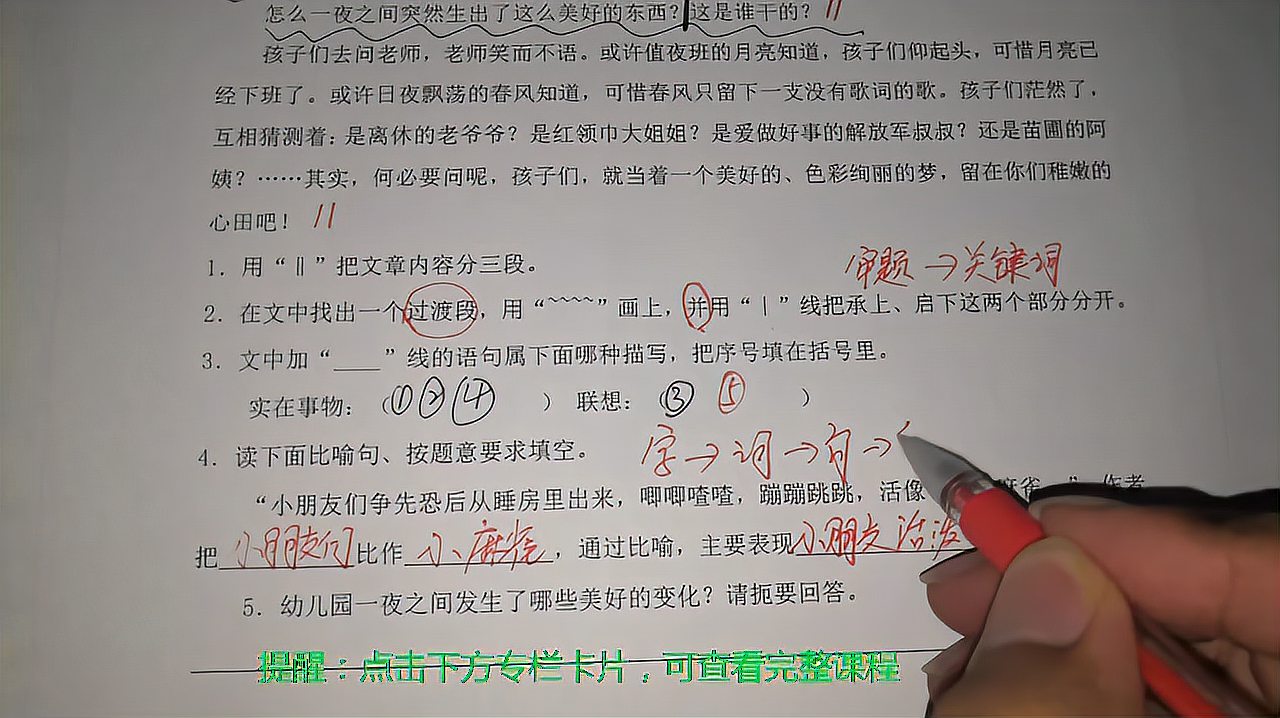 怎么一夜之间突然生出了这么美好的东西？这是谁干的？‖
孩子们去问老师，老师笑而不语。或许值夜班的月亮知道，孩子们仰起头，可惜月亮已
经下班了。或许日夜飘荡的春风知道，可惜春风只留下一支没有歌词的歌。孩子们茫然了，
互相猜测着：是离休的老爷爷？是红领巾大姐姐？是爱做好事的解放军叔叔？还是苗圃的阿
姨？……其实，何必要问呢，孩子们，就当着一个美好的、色彩绚丽的梦，留在你们稚嫩的
心田吧！‖
1．用“‖”把文章内容分三段。
审题→关键词
2．在文中找出一个过渡段，用“~~~~”画上，并用“｜”线把承上、启下这两个部分分开。
3．文中加“____”线的语句属下面哪种描写，把序号填在括号里。
实在事物：（①②④ ） 联想：（③ ⑤ ）
4．读下面比喻句、按题意要求填空。
字→词→句→
“小朋友们争先恐后从睡房里出来，唧唧喳喳，蹦蹦跳跳，活像 麻雀。”作者
把小朋友们比作小麻雀，通过比喻，主要表现小朋友活泼
5．幼儿园一夜之间发生了哪些美好的变化？请扼要回答。
提醒：点击下方专栏卡片，可查看完整课程